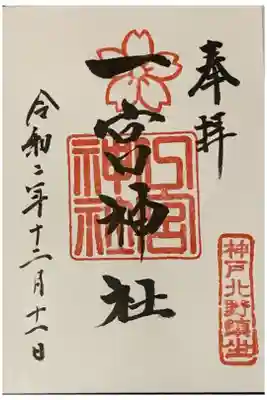 奉拝
一宮神社
一宮神社
神戸北野鎮坐
令和二年十二月十一日